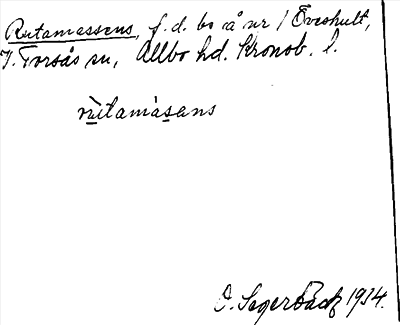 Rutamassens, f.d. bo å nr 1 Öveshult,
V. Torsås sn, Allbo hd. Kronob. l.
rùtamàsans
O. Segerbäck 1934.